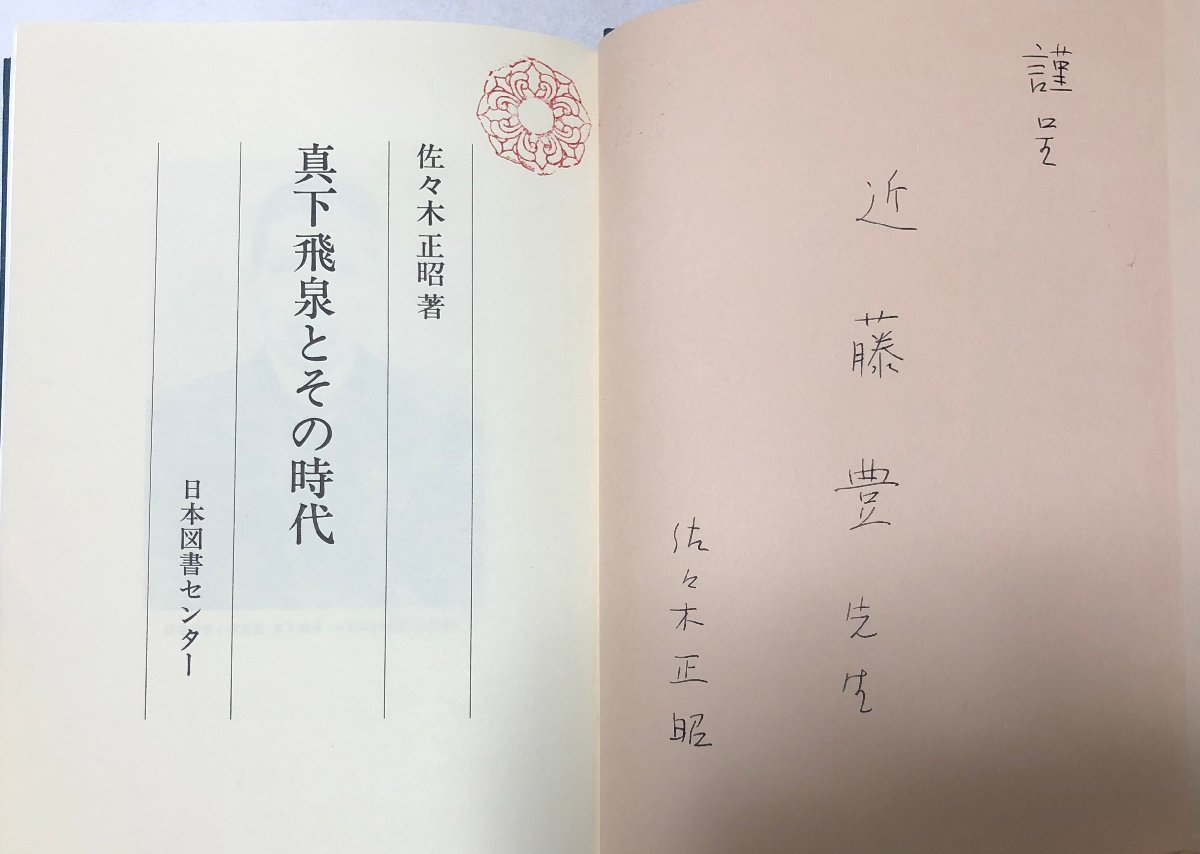 謹呈
近藤豊先生
佐々木正昭
佐々木正昭著
真下飛泉とその時代
日本図書センター